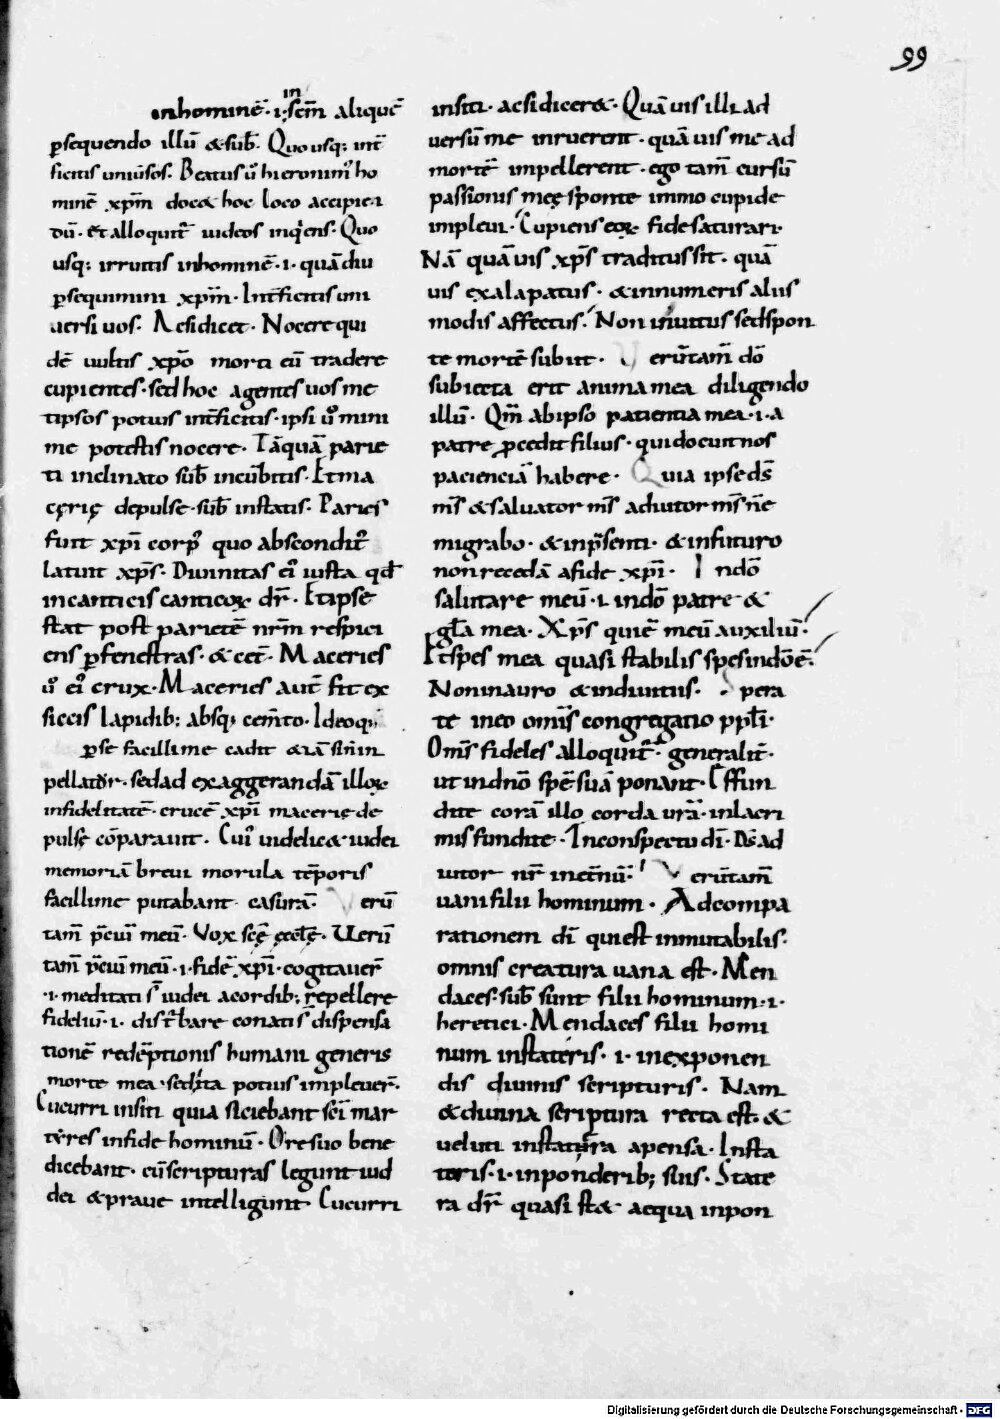 99
inhominē· .i. in sem̄ aliquē
ꝑsequendo illū &sub͞. Quousq; int͞
ficitis uniūsos. Beatus ū hieronim᾽ ho
minē xp̄m doc& hoc loco accipien
dū· Et alloquit᾽ iudeos inq᾽ens· Quo
usq; irruitis inhominē· .i. quādiu
ꝑsequimini xp̄m· Int͞ficitis uni
uersi uos. Acsidicer&· Nocere qui
dē uultis xp̄o morti eū tradere
cupientes· sed hoc agentes uos me
tipsos potius int͞ficitis· ipsi ū mini
me potestis nocere· Tāquā parie
ti inclinato sub͞ incūbitis· Et ma
cęrię depulsę· sub͞ instatis· Paries
fuit xp̄i corp᾽ quo abscondit᾽
latuit xp̄s· Diuinitas ei᾽ iuxta qd͞
incanticis canticoꝝ dr̄· Et ipse
stat post parietē nr̄m respici
ens ꝑ fenestras· & cet͞· Maceries
ū ei᾽ crux· Maceries aut͞ fit ex
siccis lapidib; absq; cem̄to· Ideoq;
ꝑ se facillime cadit
pellat᾽r· sed ad exaggerandā illoꝝ
infidelitatē· crucē xp̄i macerię de
pulsę cōparauit· Cui᾽ uidelic& iudei
memoriā breui morula tēporis
facillime putabant casurā· Verū
tam̄ p̄ciū meū· Vox scę̄ ęccłę· Uerū
tam̄ p̄ciū meū· .i. fidē xp̄i· cogitauer͞
.i. meditati s̄ iudei a cordib; repellere
fideliū· .i. dist᾽bare conati s̄ dispensa
tionē redēptionis humani generis
morte mea· sed ita potius impleuer͞·
Cucurri insiti quia siciebant sc̄i mar
tẏres infide hominū· Ore suo bene
dicebant· cū scripturas legunt iud
dei & praue intelligunt Cucurri
insiti· acsidicer&· Quāuis illi ad
uersū me inruerent· quāuis me ad
mortē impellerent· ego tam̄ cursū
passionis meę sponte immo cupide
impleui· Cupiens eoꝝ fide saturari·
Nā quāuis xp̄s traditus sit· quā
uis exalapatus· & innumeris aliis
modis affectus· Non inuitus sed spon
te mortē subiit· Verūtam̄ dō
subiecta erit anima mea diligendo
illū· Qm̄ ab ipso patientia mea· .i. a
patre ꝓcedit filius· qui docuit nos
pacienciā habere· Quia ipse ds̄
ms̄ & saluator ms̄ adiutor ms̄ n̄e
migrabo· & inp̄senti· & infuturo
non recedā afide xp̄i· Indō
salutare meū· .i. indō patre &
gła mea· Xp̄s qui ē meū auxiliū·
Et spes mea quasi stabilis spes indō ē·
Non in auro & indiuitiis· Spera
te in eo om̄is congregatio pp̄łi·
Om̄s fideles alloquit᾽· generalit͞·
ut indn̄o spē suā ponant· Effun
dite corā illo corda ur̄a· inlacri
mis fundite· Inconspectu dī· Ds̄ ad
iutor nr̄ inet͞nū· Verūtam̄
uani filii hominum· Adcompa
rationem dī qui est inmutabilis·
omnis creatura uana est· Men
daces· sub͞ sunt filii hominum· .i.
heretici· Mendaces filii homi
num in stateris· .i. inexponen
dis diuinis scripturis· Nam
& diuina scriptura recta est· &
ueluti in statura apensa· Insta
teris· .i. inponderib; suis· State
ra dr̄ quasi st& aequa inpon
Digitalisierung gefördert durch die Deutsche Forschungsgemeinschaft - DFG